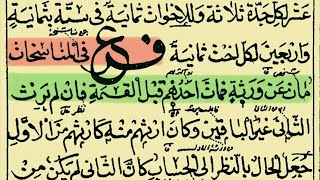 عشر لكل جدة ثلاثة وللاخوات ثمانية فى ستة بثمانية
واربعين لكل اخت ثمانية فرع فى المناسخات
مات عن ورثة فمات احدهم قبل القسمة فان لم يرث
الثانى غير الباقين وكان ارثهم منه كارثهم من الاول
جعل الحال بالنظر الى الحساب كأن الثانى لم يكن من